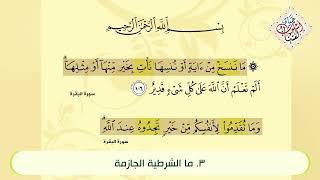 بِسْمِ ٱللَّهِ ٱلرَّحْمَٰنِ ٱلرَّحِيمِ
مَا نَنسَخْ مِنْ ءَايَةٍ أَوْ نُنسِهَا نَأْتِ بِخَيْرٍ مِّنْهَا أَوْ مِثْلِهَا
أَلَمْ تَعْلَمْ أَنَّ ٱللَّهَ عَلَىٰ كُلِّ شَىْءٍ قَدِيرٌ ١٠٦
سورة البقرة
وَمَا تُقَدِّمُوا۟ لِأَنفُسِكُم مِّنْ خَيْرٍ تَجِدُوهُ عِندَ ٱللَّهِ
سورة البقرة
٣. ما الشرطية الجازمة